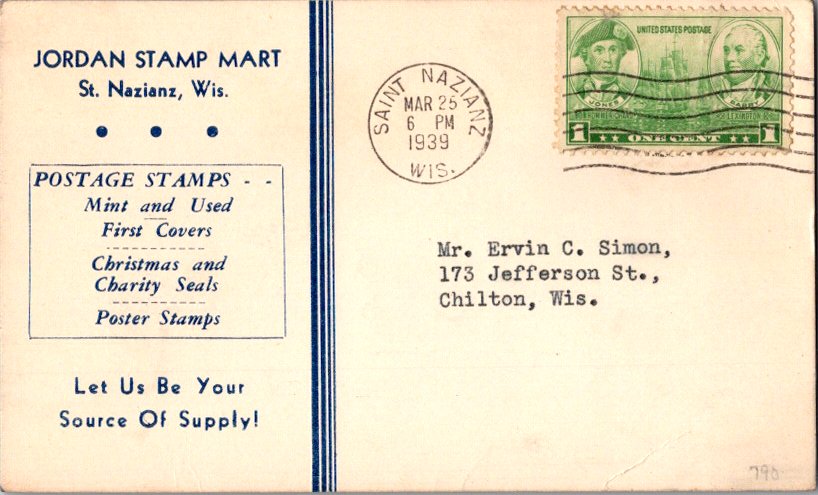 JORDAN STAMP MART
St. Nazianz, Wis.
POSTAGE STAMPS - -
Mint and Used
First Covers
Christmas and
Charity Seals
Poster Stamps
Let Us Be Your
Source Of Supply!
SAINT NAZIANZ
MAR 25
6 PM
1939
WIS.
UNITED STATES POSTAGE
JONES
BARRY
1 ONE CENT 1
Mr. Ervin C. Simon,
173 Jefferson St.,
Chilton, Wis.
790